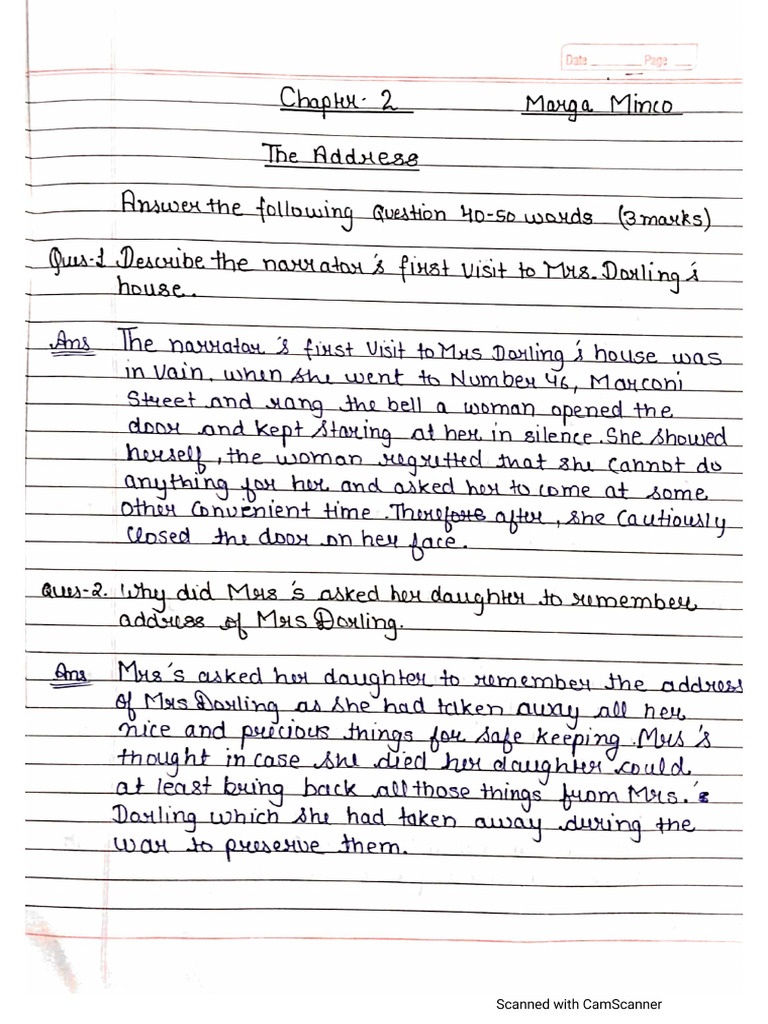 Date Page
Chapter-2 Marga Minco
The Address
Answer the following Question 40-50 words (3marks)
Ques-1 Describe the narrator's first visit to Mrs. Dorling's
house.
Ans The narrator's first visit to Mrs Dorling's house was
in vain. when she went to Number 46, Marconi
Street and rang the bell a woman opened the
door and kept staring at her in silence. She showed
herself, the woman regretted that she cannot do
anything for her and asked her to come at some
other convenient time. Thereafter, she cautiously
closed the door on her face.
Ques-2. Why did Mrs's asked her daughter to remember
address of Mrs Dorling.
Ans Mrs's asked her daughter to remember the address
of Mrs Dorling as she had taken away all her
nice and precious things for safe keeping. Mrs's
thought in case she died her daughter could
at least bring back all those things from Mrs.'s
Dorling which she had taken away during the
war to preserve them.
Scanned with CamScanner